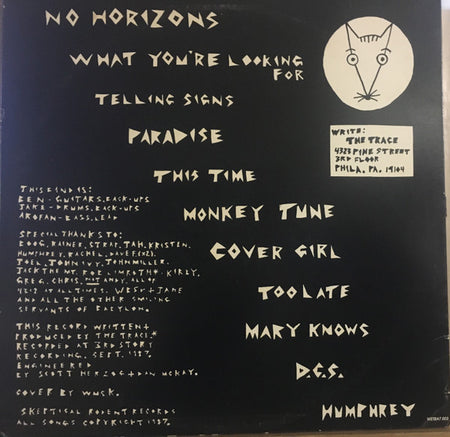 NO HORIZONS
WHAT YOU'RE LOOKING
FOR
TELLING SIGNS
PARADISE
THIS TIME
MONKEY TUNE
COVER GIRL
TOO LATE
MARY KNOWS
D.G.S.
HUMPHREY
WRITE:
THE TRACE
4323 PINE STREET
3RD FLOOR
PHILA. PA. 19104
THIS BAND IS:
BEN - GUITARS, BACK-UPS
JAKE - DRUMS, BACK-UPS
- BASS, LEAD
SPECIAL THANKS TO:
DOOG, RAINER, STRAP, TAM, KRISTEN,
HUMPHREY, RACHEL,
JOEL, JOHN IVY, JOHN MILLER,
JACK THE NT, ROB KIRBY,
GREG, CHRIS, NOT ANDY, ALL OF
AT ALL TIMES,
AND ALL THE OTHER SMILING
SERVANTS OF BABYLON.
THIS RECORD WRITTEN &
PRODUCED BY THE TRACE.
RECORDED AT 3RD STORY
RECORDING, SEPT. 1987.
ENGINEERED
BY SCOTT HERZOG & DAN MCKAY.
COVER BY
SKEPTICAL RODENT RECORDS
ALL SONGS COPYRIGHT 1987.